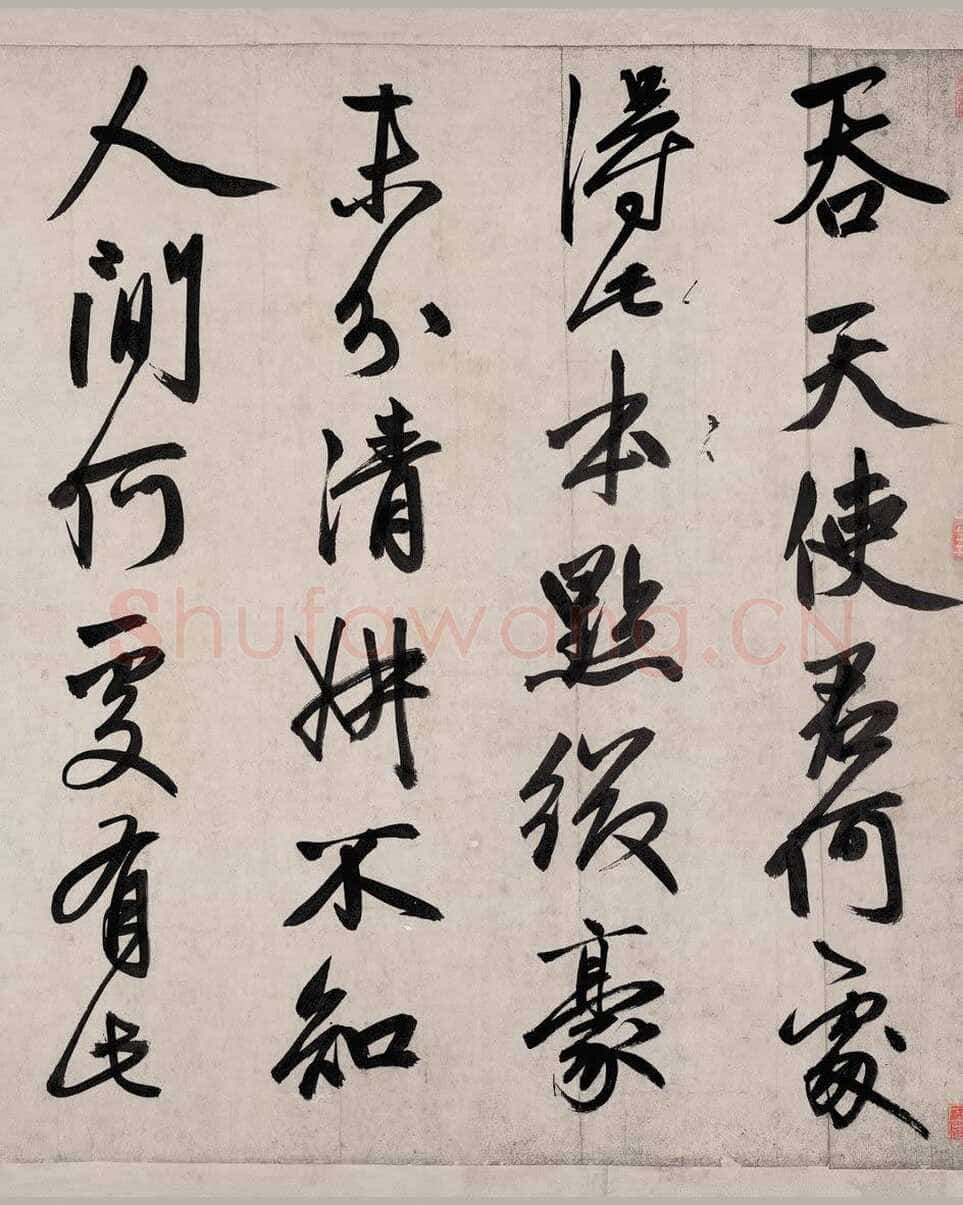 吞天使君何處
得此本點綴豪
末分清妍不知
人間何處有此
Shufawang.CN